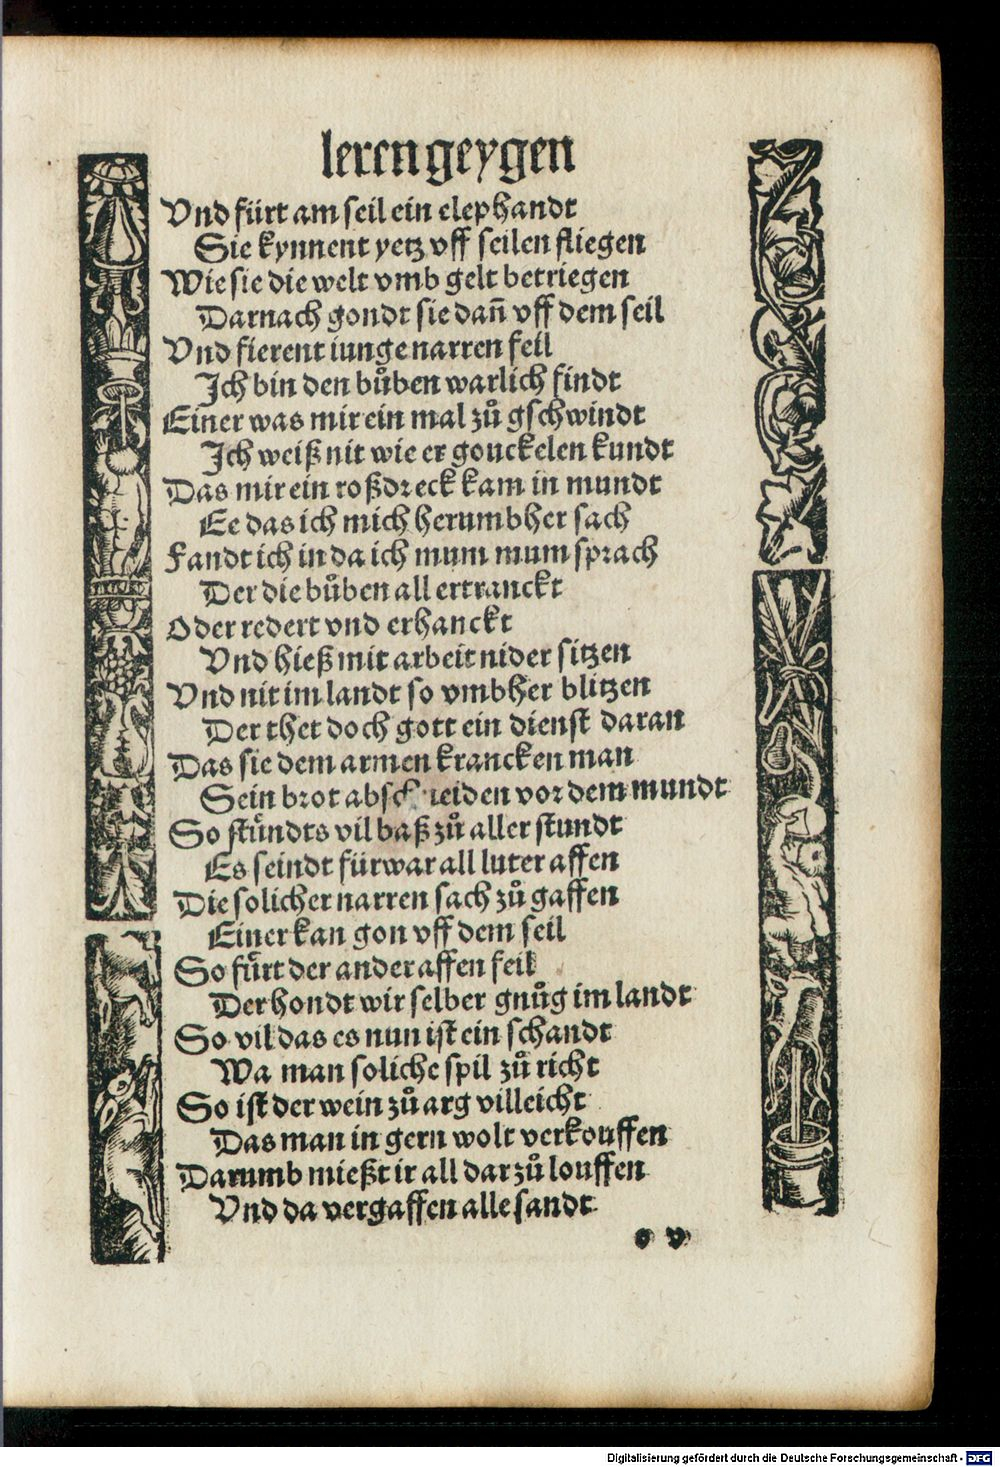 leren geygen
Vnd fürt am seil ein elephandt
Sie kynnent yetz vff seilen fliegen
Wie sie die welt vmb gelt betriegen
Darnach gondt sie dañ vff dem seil
Vnd fierent iunge narren feil
Ich bin den bůben warlich findt
Einer was mir ein mal zů gschwindt
Ich weiß nit wie er gouckelen kundt
Das mir ein roßdreck kam in mundt
Ee das ich mich herumbher sach
Fandt ich in da ich mum mum sprach
Der die bůben all ertranckt
Oder redert vnd erhanckt
Vnd hieß mit arbeit nider sitzen
Vnd nit im landt so vmbher blitzen
Der thet doch gott ein dienst daran
Das sie dem armen krancken man
Sein brot abschneiden vor dem mundt
So stündts vil baß zů aller stundt
Es seindt fürwar all luter affen
Die solicher narren sach zů gaffen
Einer kan gon vff dem seil
So fürt der ander affen feil
Der hondt wir selber gnůg im landt
So vil das es nun ist ein schandt
Wa man soliche spil zů richt
So ist der wein zů arg villeicht
Das man in gern wolt verkouffen
Darumb mießt ir all dar zů louffen
Vnd da vergaffen alle sandt
o v
Digitalisierung gefördert durch die Deutsche Forschungsgemeinschaft - DFG